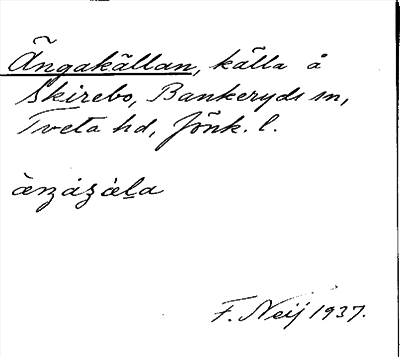 Ängakällan, källa å
Skirebo, Bankeryds sn,
Tveta hd, Jönk. l.
F. Neij 1937.